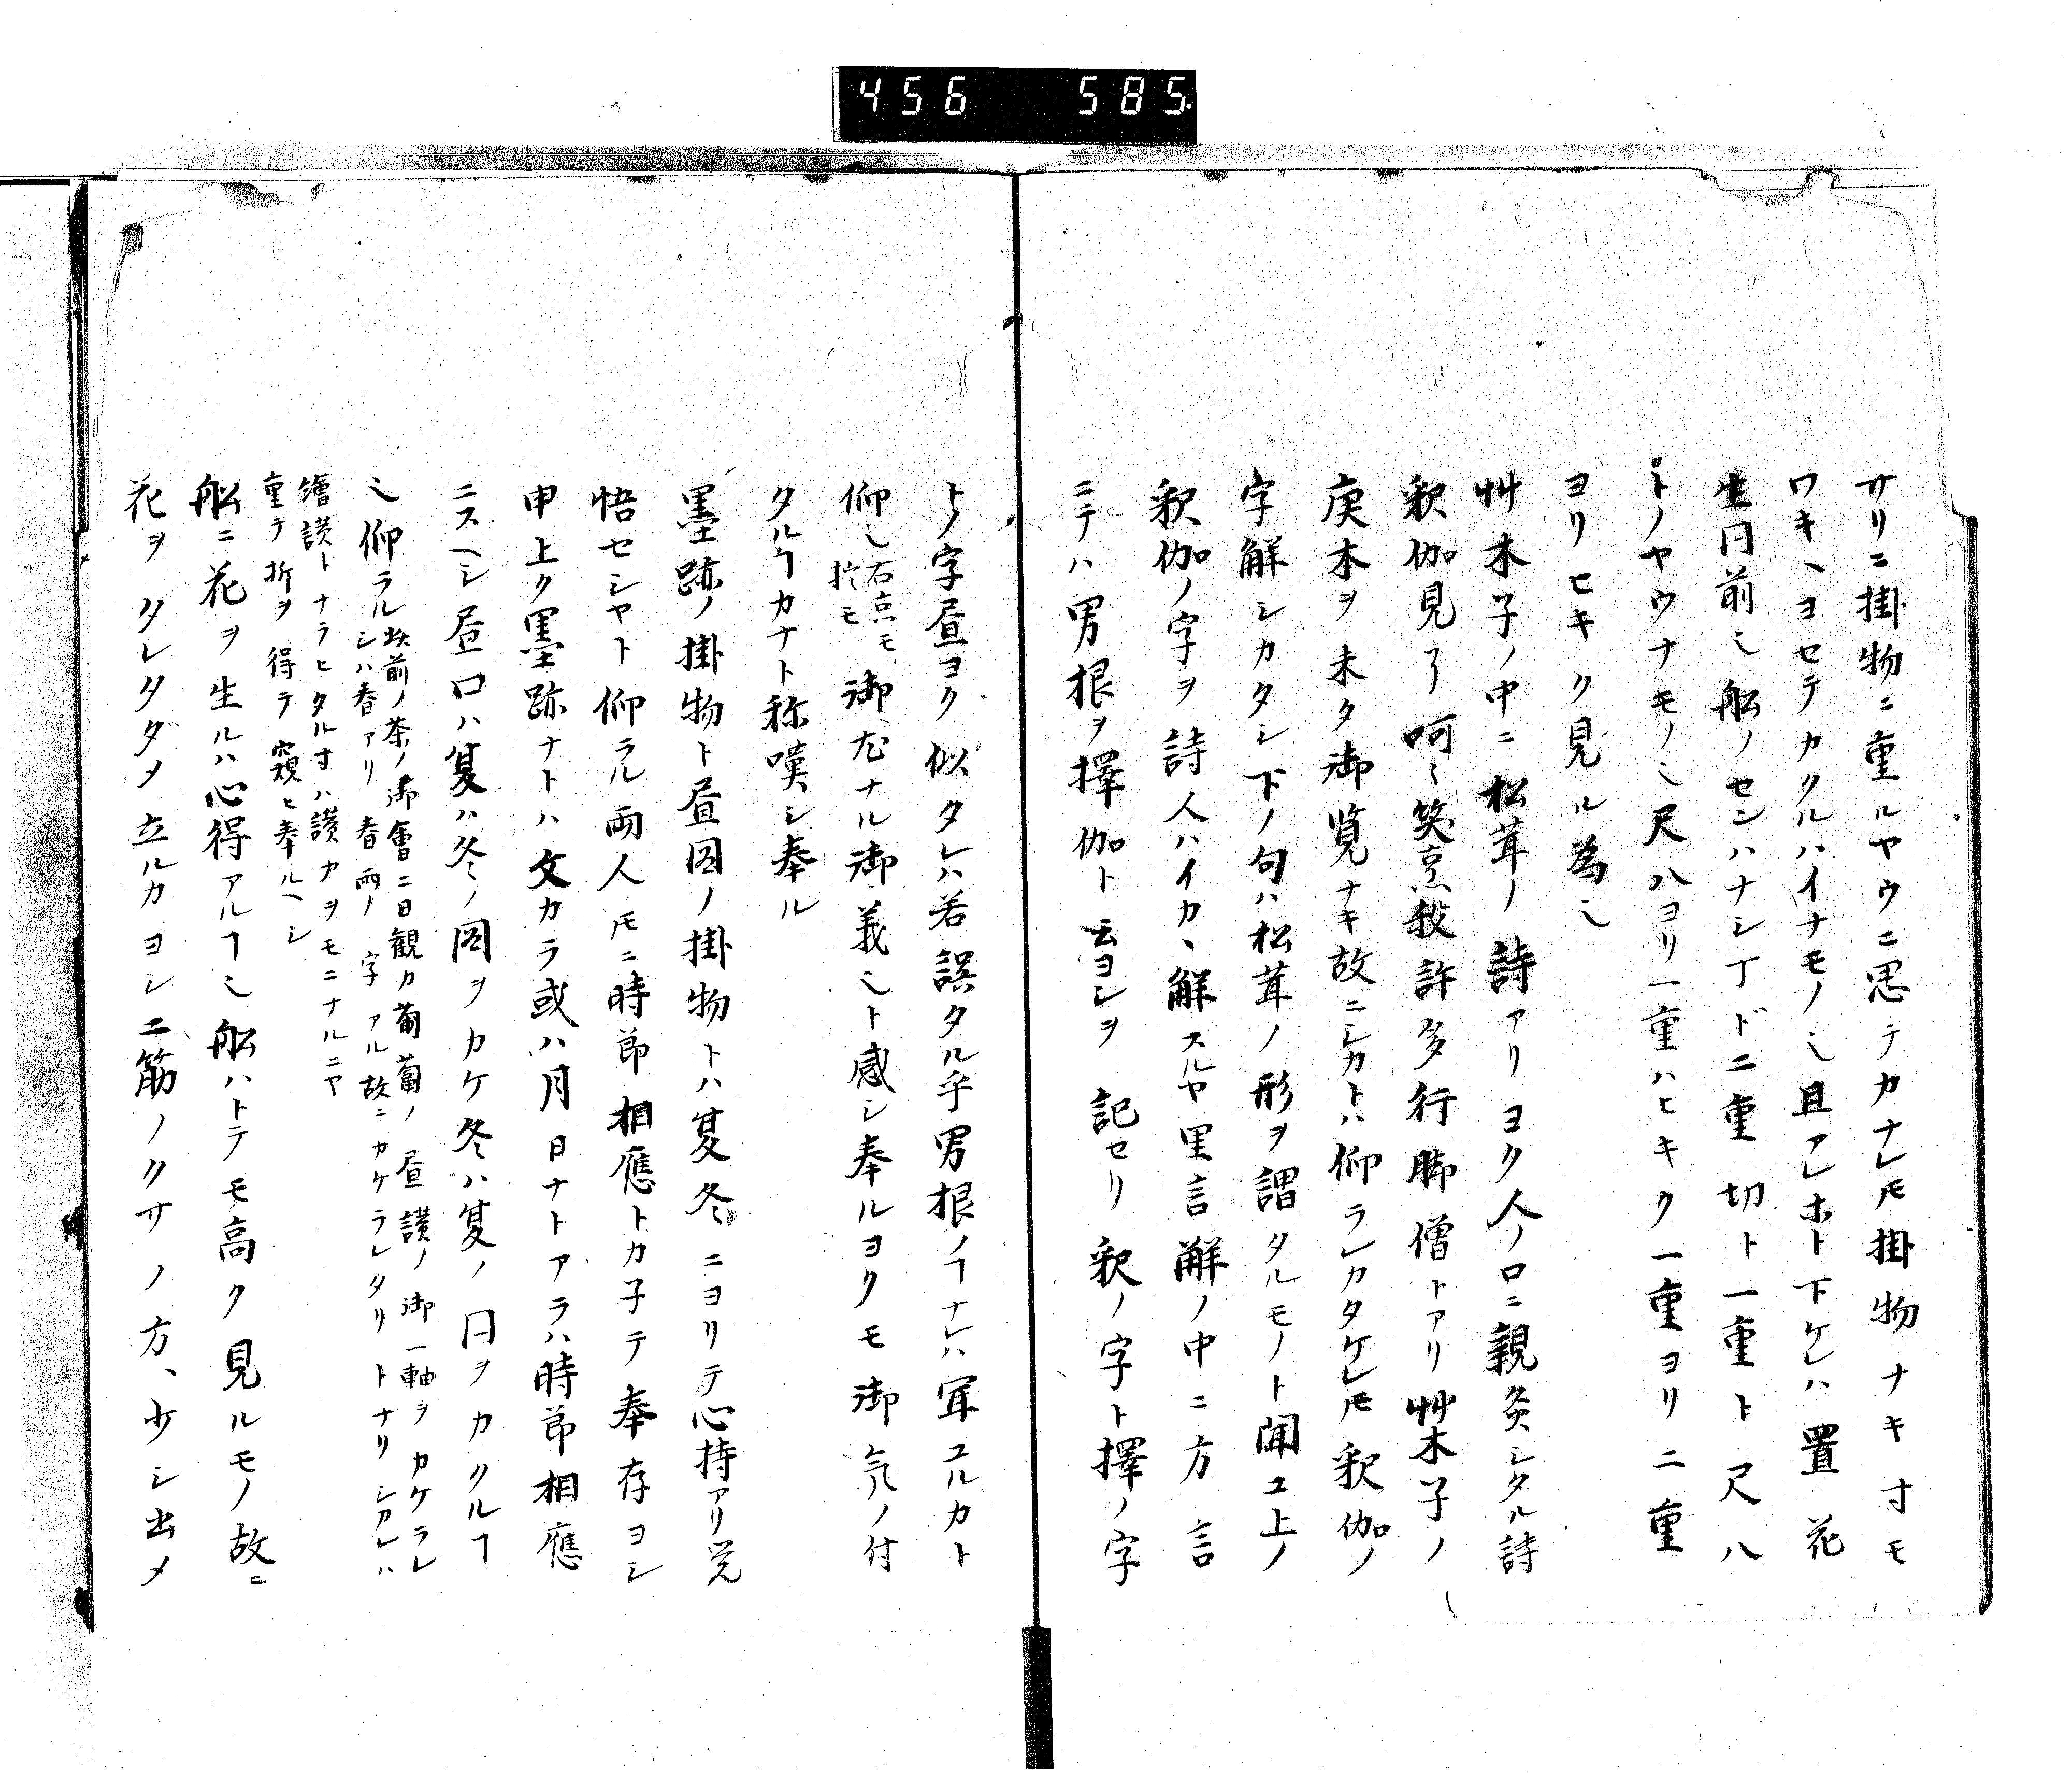 456 585
サリニ掛物ニ重ルヤウニ思テカナレ𪜈掛物ナキ寸モ
ワキヽヨセテカクルハイナモノ乄且アレホト下ケレハ置花
生同前乄船ノセンハナシ丁ド二重切ト一重ト尺八
トノヤウナモノ乄尺八ヨリ一重ハヒキク一重ヨリ二重
ヨリヒキク見ル為乄
艸木子ノ中ニ松茸ノ詩アリヨク人ノロニ親炙シタル詩
釈伽見了呵〻笑煮殺許多行脚僧トアリ艸木子ノ
庚本ヲ未タ御覧ナキ故ニシカトハ仰ラレカタケレ𪜈釈伽ノ
字解シカタシ下ノ句ハ松茸ノ形ヲ謂タルモノト聞ユ上ノ
釈伽ノ字ヲ詩人ハイカヽ解スルヤ里言解ノ中ニ方言
ニテハ男根ヲ擇伽ト云ヨシヲ記セリ釈ノ字ト擇ノ字
トノ字昼ヨク似タレハ若誤タル乎男根ノヿナレハ冝ユルカト
仰乄右点モ於モ御尤ナル御義乄ト感シ奉ルヨクモ御気ノ付
タルヿカナト称嘆シ奉ル
墨跡ノ掛物ト昼図ノ掛物トハ夏冬ニヨリテ心持アリ覚
悟セシヤト仰ラル両人𪜈ニ時節相應トカ子テ奉存ヨシ
申上ク墨跡ナトハ文カラ或ハ月日ナトアラハ時節相應
ニスヘシ昼口ハ夏ハ冬ノ図ヲカケ冬ハ夏ノ口ヲカクルヿ
乄仰ラル此前ノ茶ノ御會ニ日観カ葡萄ノ昼讃ノ御一軸ヲカケラレ
シハ春アリ春雨ノ字アル故ニカケラレタリトナリシカレハ
繪讃トナラヒタル寸ハ讃カヲモニナルニヤ
重テ折ヲ得テ窺ヒ奉ルヘシ
船ニ花ヲ生ルハ心得アルヿ乄船ハトテモ高ク見ルモノ故ニ
花ヲタレタダメ立ルカヨシ二筋ノクサノ方ヽ少シ出メ